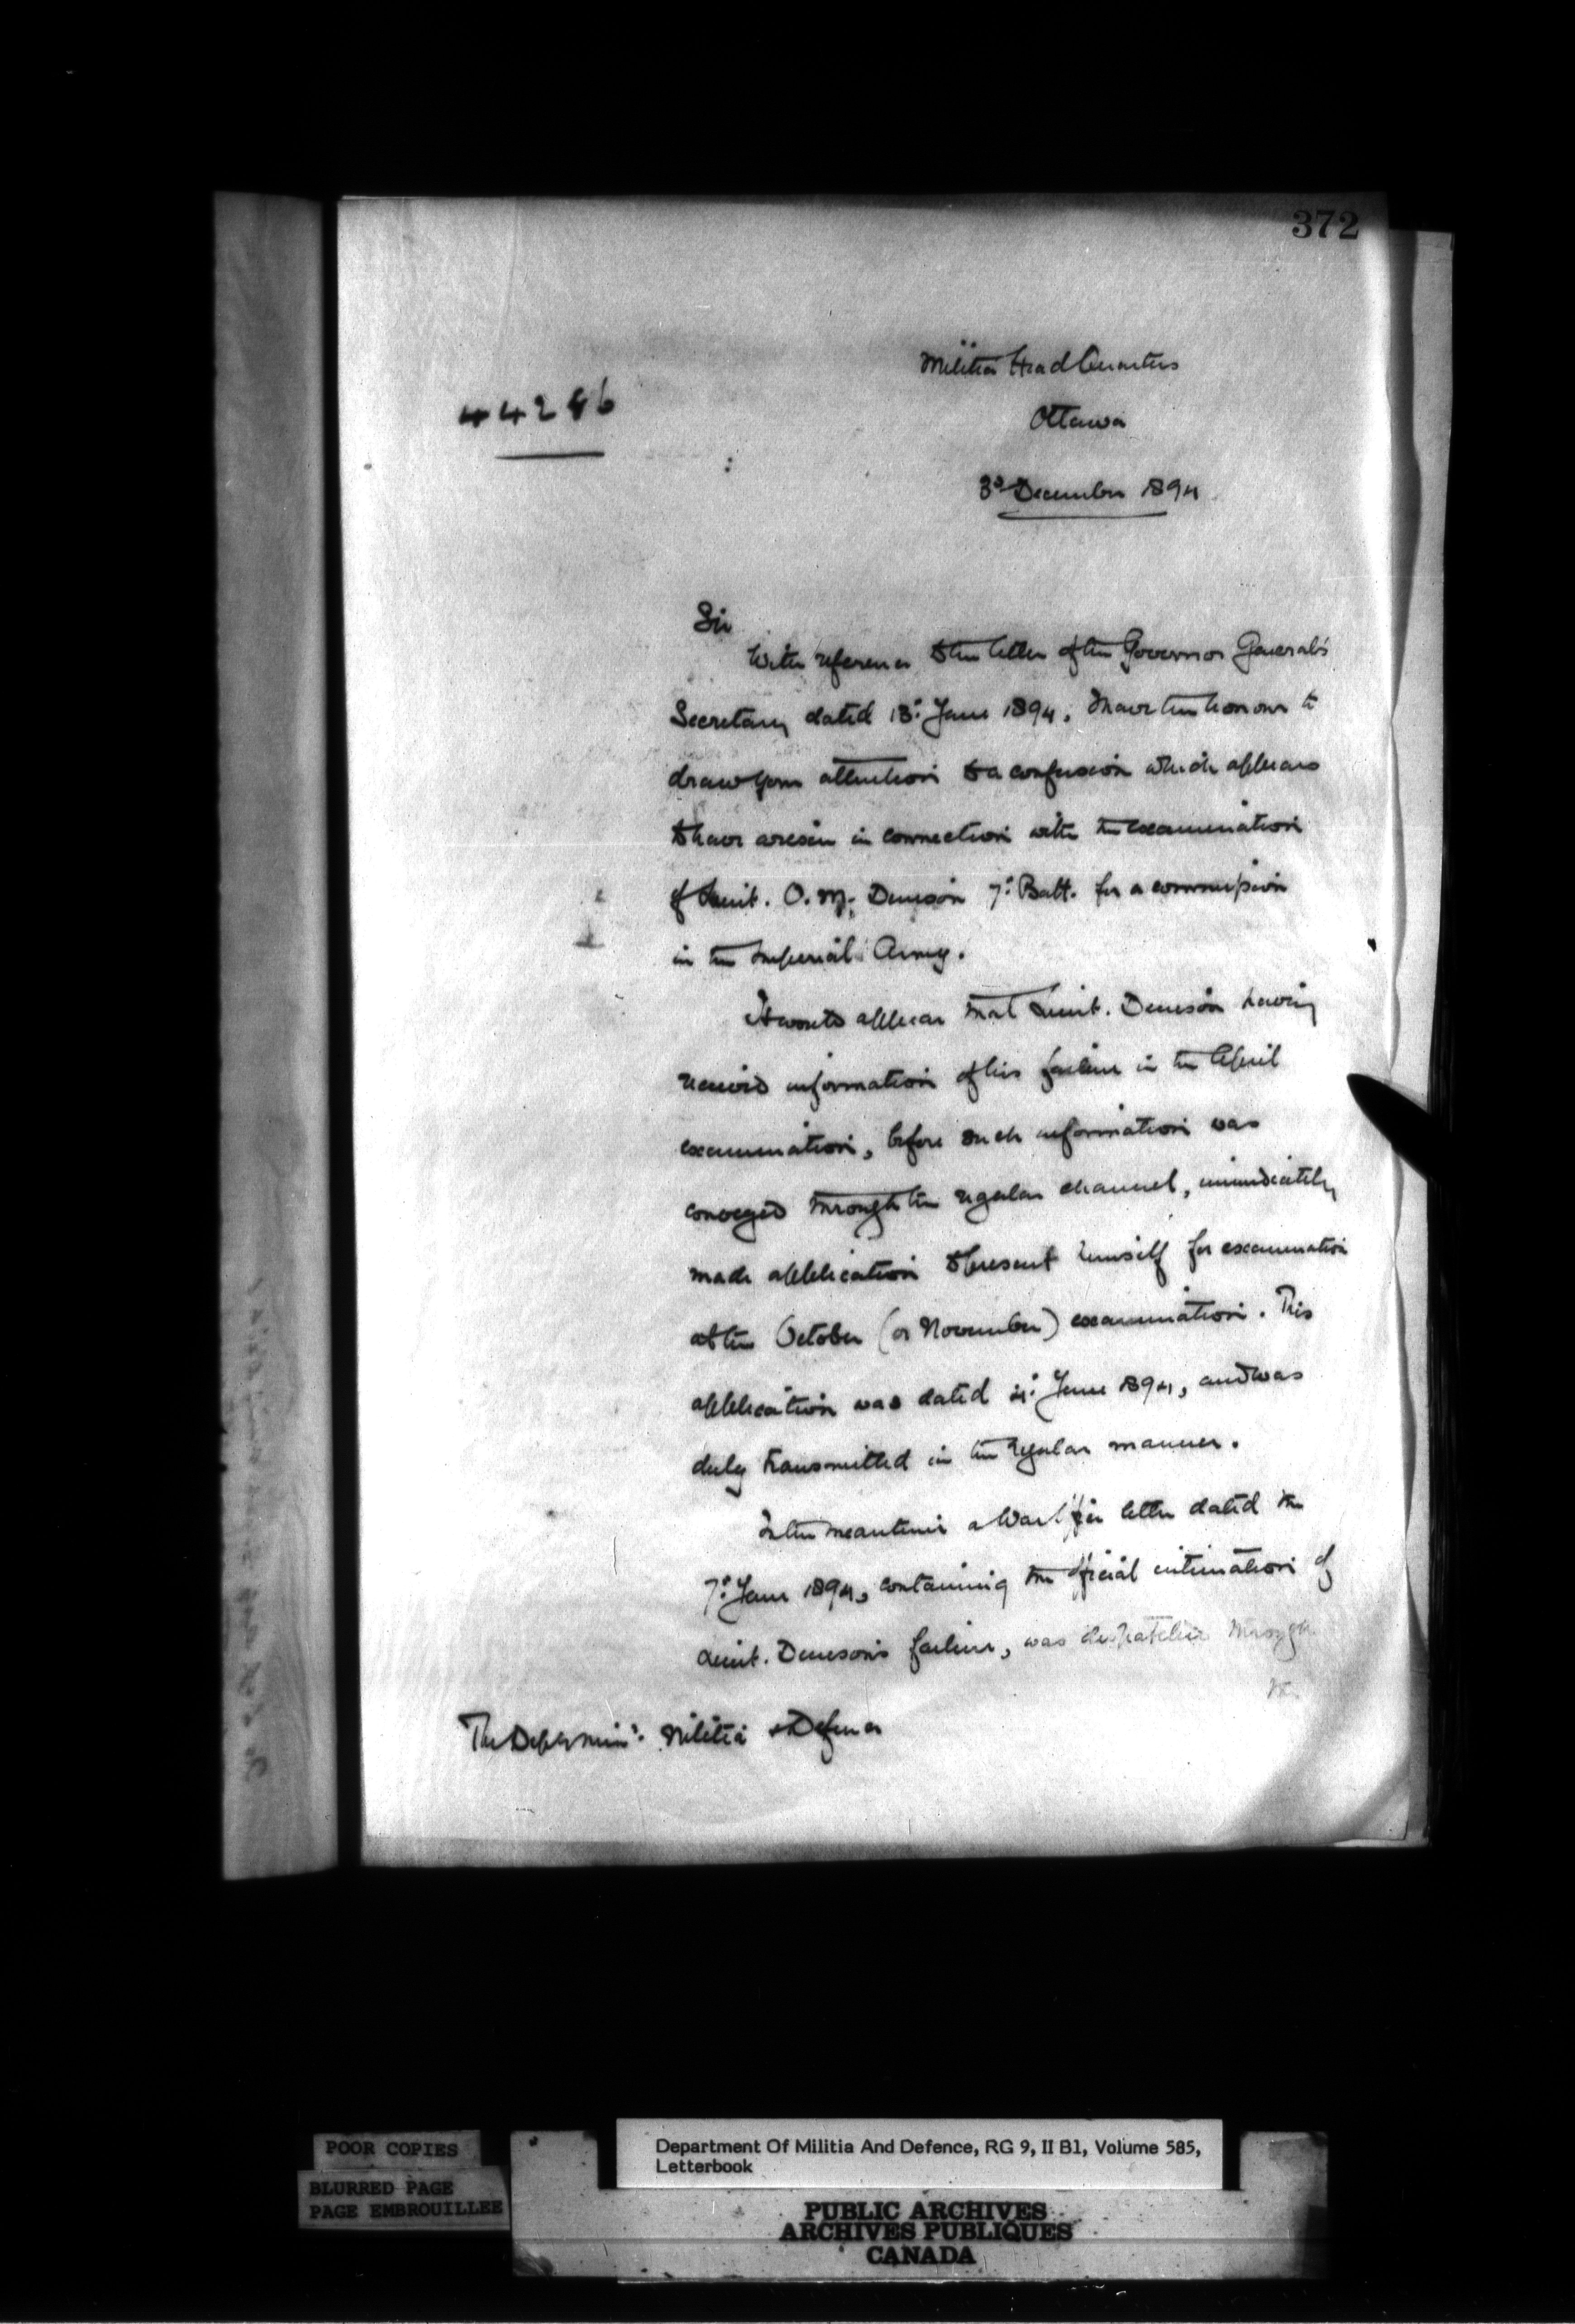 372
Militia Head Quarters
44286
Ottawa
3d December 1894
Sir
With reference to the letter of the Governor General's
Secretary dated 13th June 1894, I have the honour to
draw your attention to a confusion which appears
to have arisen in connection with the examination
of Lieut. O. M. Denison 7th Batt. for a commission
in the Imperial Army.
It would appear that Lieut. Denison having
received information of his failure in the April
examination, before such information was
conveyed through the regular channel, immediately
made application to present himself for examination
at the October (or November) examination. This
application was dated 4th June 1894, and was
duly transmitted in the regular manner.
In the meantime a War Office letter dated the
7th June 1894, containing the official intimation of
Lieut. Denison's failure, was despatched through
the
The Dep. Min. Militia & Defence
POOR COPIES
BLURRED PAGE
PAGE EMBROUILLEE
Department Of Militia And Defence, RG 9, II B1, Volume 585,
Letterbook
PUBLIC ARCHIVES
ARCHIVES PUBLIQUES
CANADA